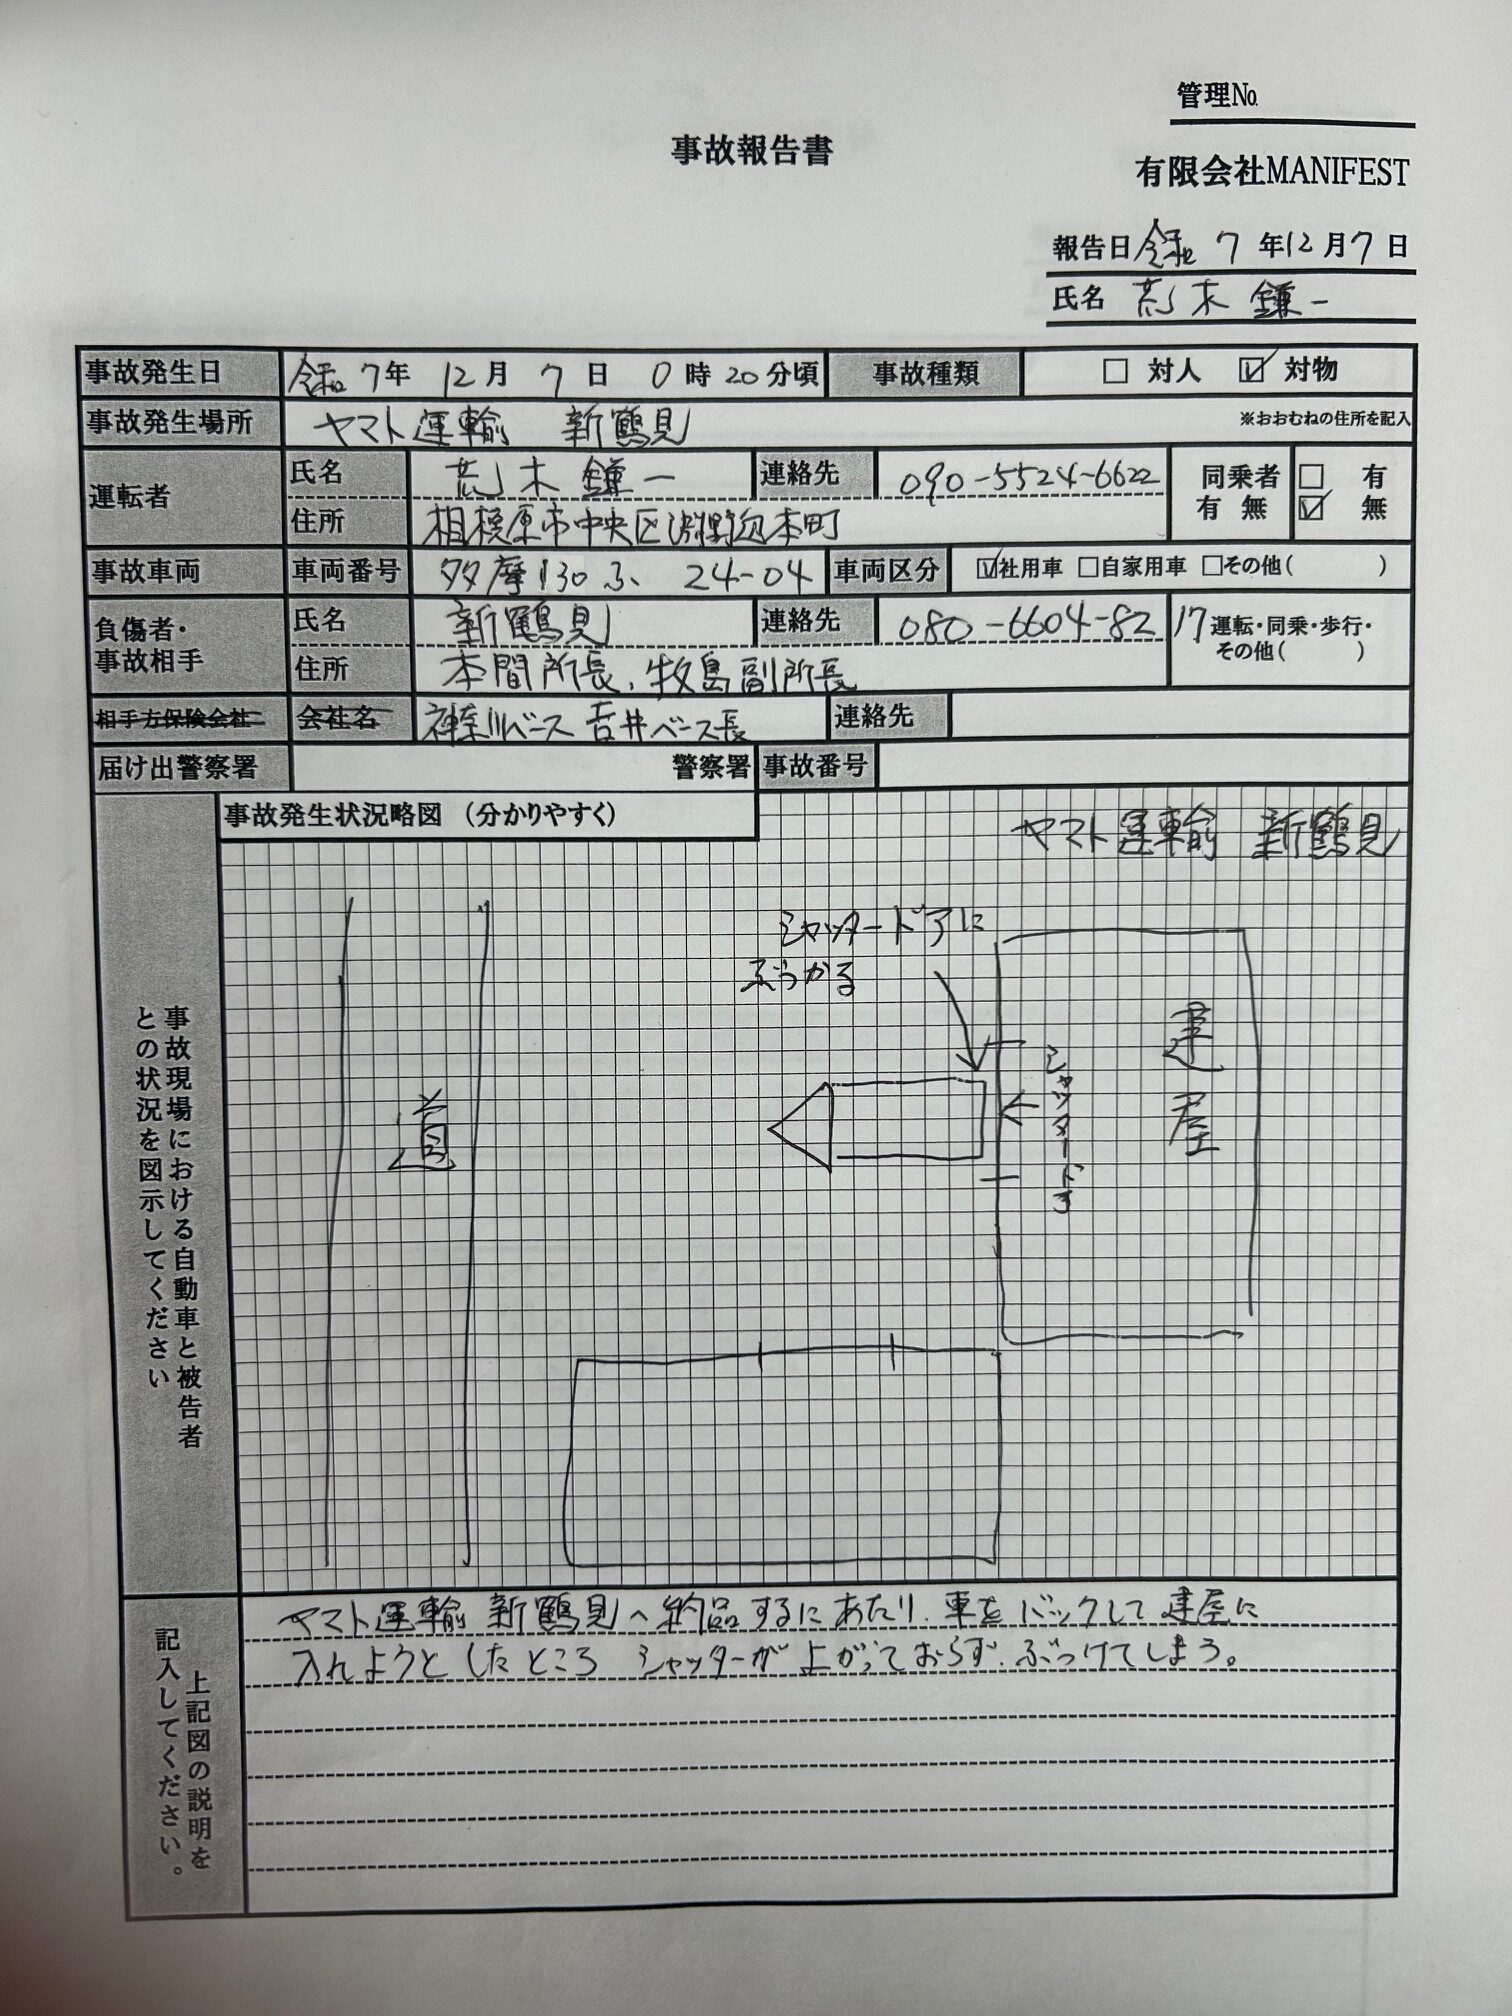 管理№
事故報告書
有限会社MANIFEST
報告日 令和 7 年 12 月 7 日
氏名 荒木 鐘一
事故発生日 令和 7年 12月 7日 0時20分頃 事故種類 □ 対人 ☑ 対物
事故発生場所 ヤマト運輸 新鶴見 ※おおむねの住所を記入
運転者 氏名 荒木 鐘一 連絡先 090-5524-6622 同乗者 有 無 □ 有 ☑ 無
住所 相模原市中央区淵野辺本町
事故車両 車両番号 多摩130 ふ 24-04 車両区分 ☑社用車 □自家用車 □その他( )
負傷者・事故相手 氏名 新鶴見 連絡先 080-6604-8217 運転・同乗・歩行・その他( )
住所 本間所長、牧島副所長
相手方保険会社 会社名 神奈川ベース 吉井ベース長 連絡先
届け出警察署 警察署 事故番号
事故発生状況略図 (分かりやすく)
ヤマト運輸 新鶴見
シャッタードアに
ぶつかる
建屋
シャッタードア
道
事故現場における自動車と被告者
との状況を図示してください
上記図の説明を
記入してください。
ヤマト運輸 新鶴見へ納品するにあたり、車をバックして建屋に
入れようとしたところ シャッターが上がっておらず、ぶつけてしまう。